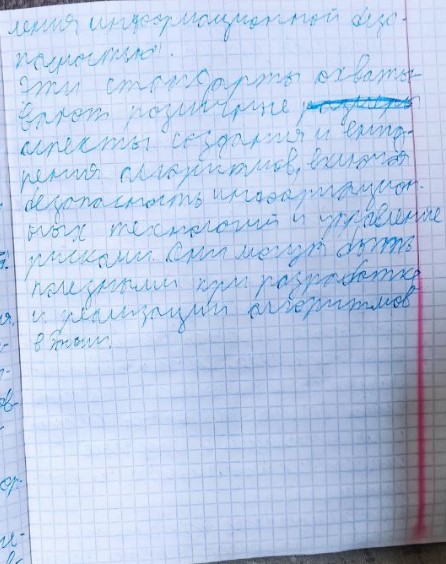 ления информационной безо-
пасностью".
Эти стандарты охваты-
вают различные
аспекты создания и внед-
рения алгоритмов, включая
безопасность информацион-
ных технологий и управление
рисками. Они могут быть
полезными при разработке
и реализации алгоритмов
в